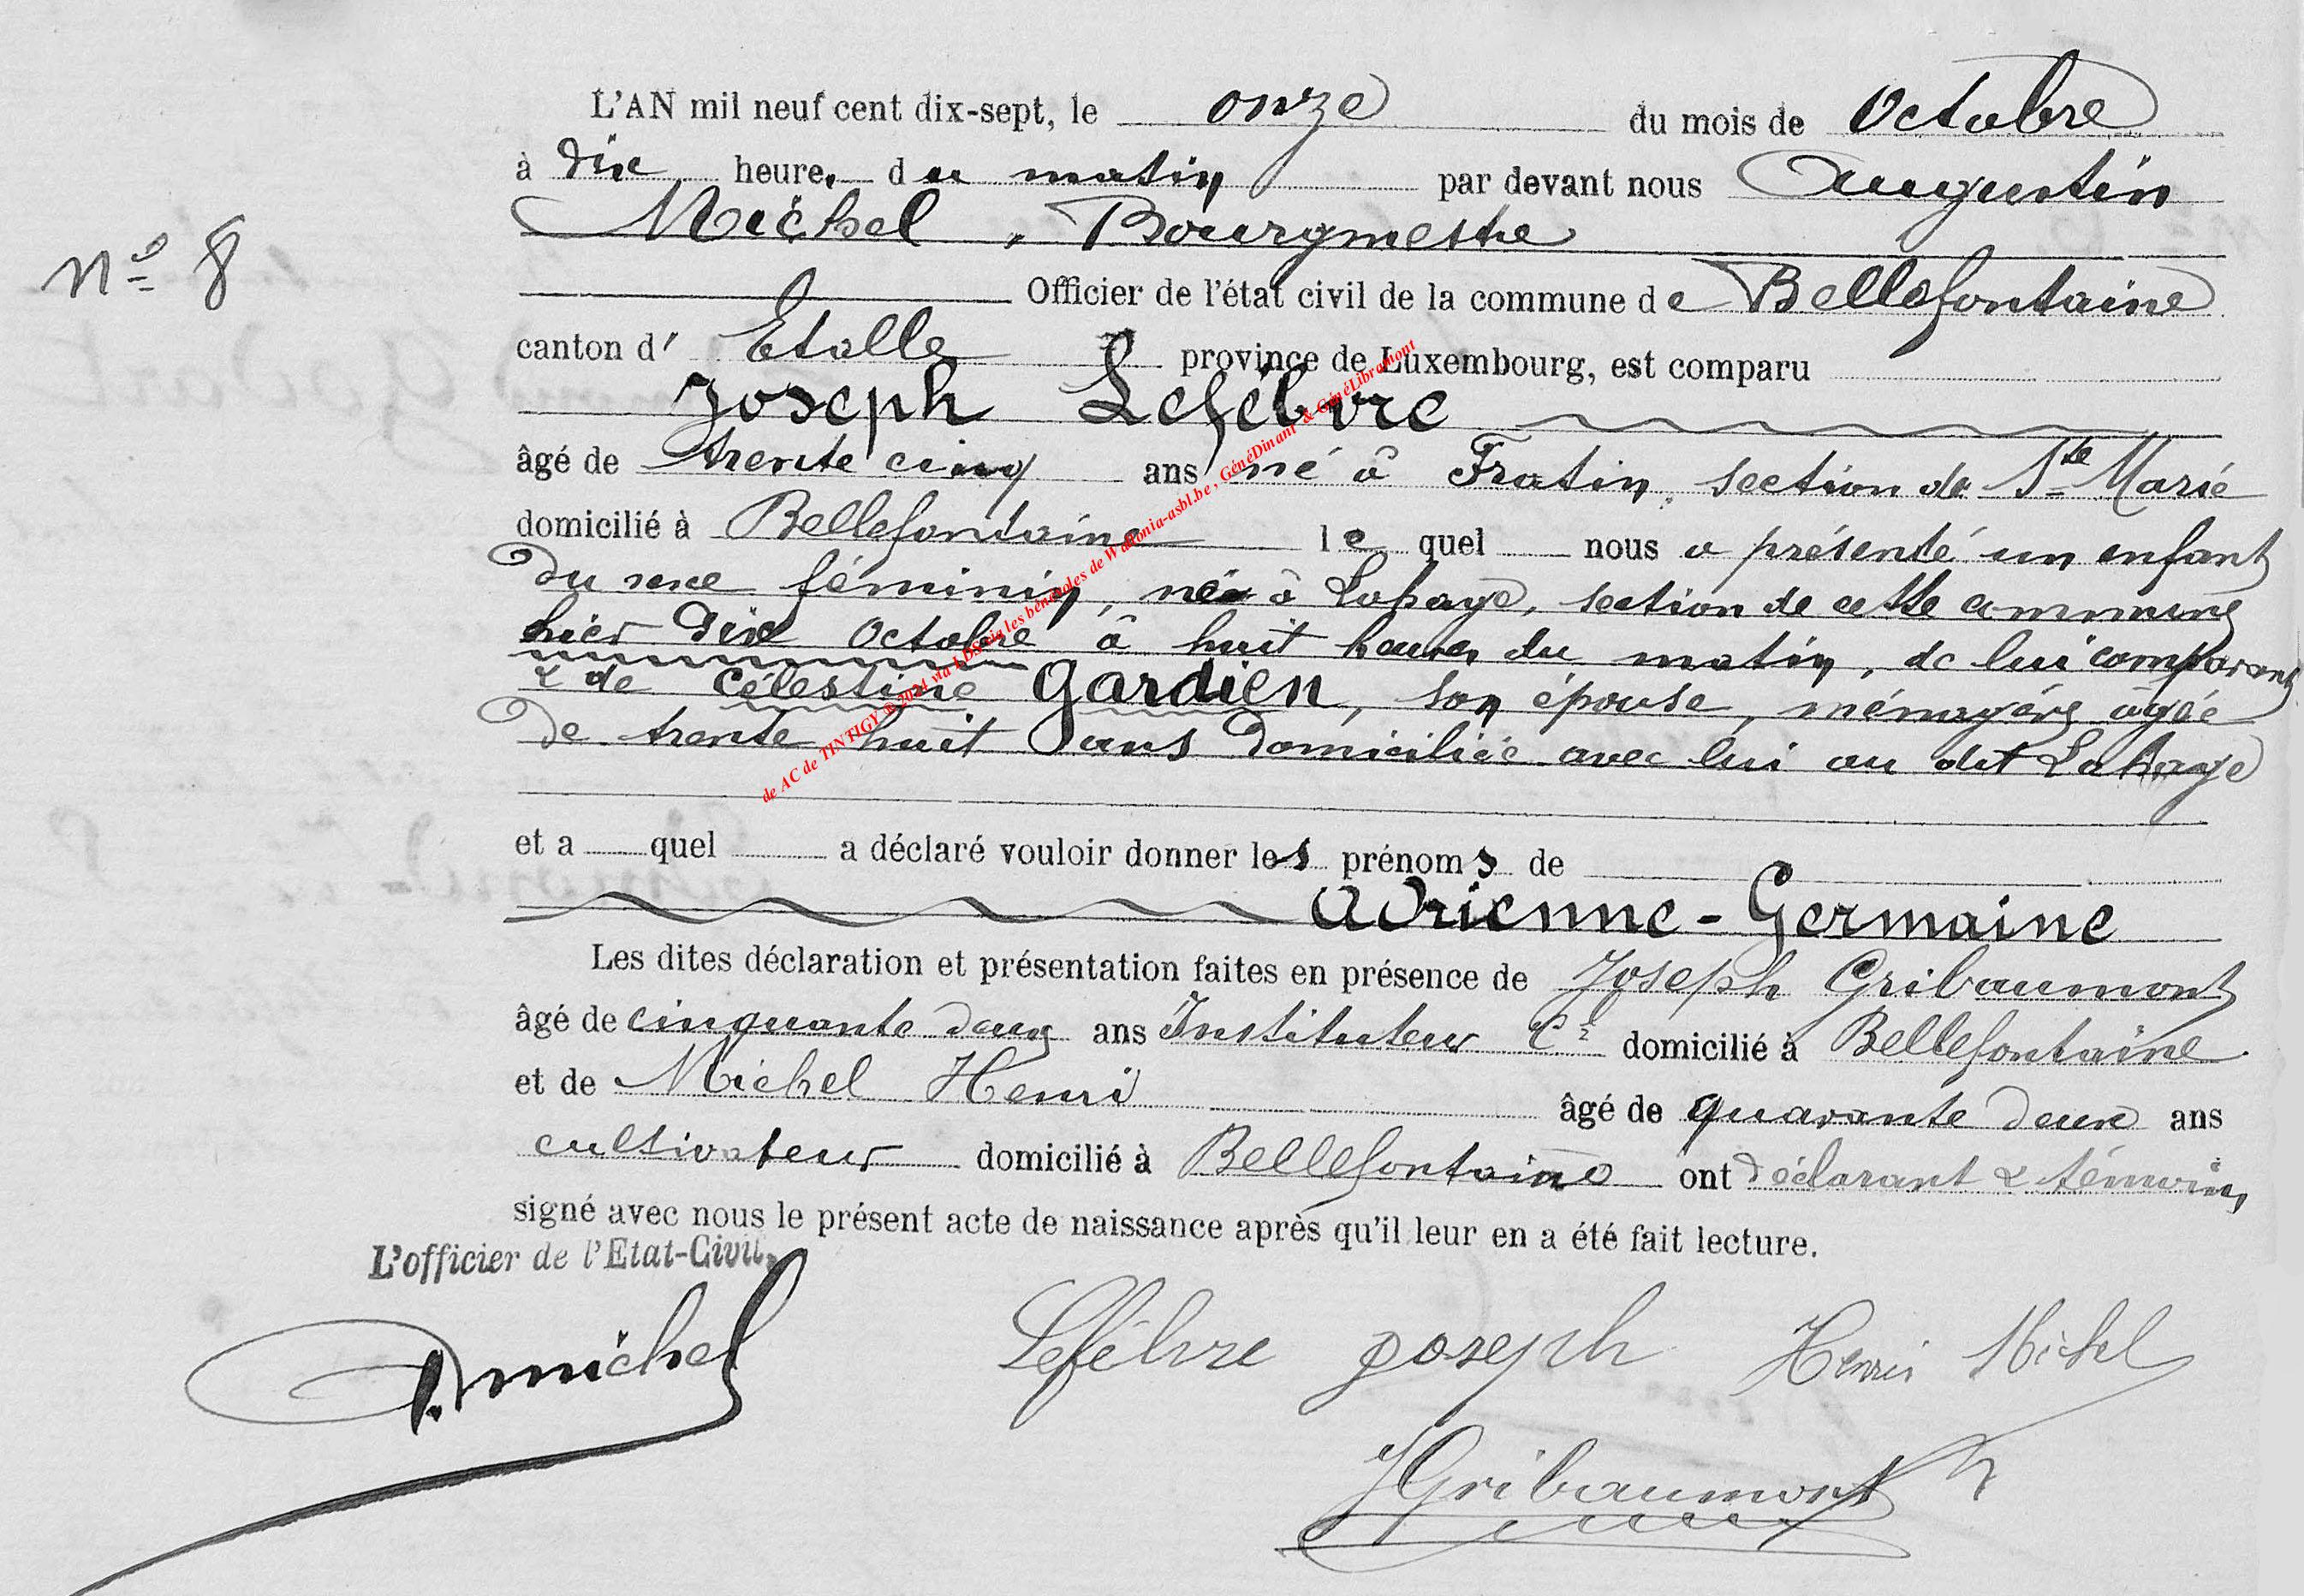 L'AN mil neuf cent dix-sept, le onze du mois de Octobre
à dix heures du matin par devant nous Augustin
Michel, Bourgmestre
N° 8
Officier de l'état civil de la commune de Bellefontaine
canton d' Etalle province de Luxembourg, est comparu
Joseph Lefèbvre
âgé de trente cinq ans né à Fratin, section de Ste Marie
domicilié à Bellefontaine lequel nous a présenté un enfant
du sexe féminin, née à Lahage, section de cette commune
hier dix Octobre à huit heures du matin, de lui comparant
& de Célestine Gardien, son épouse, ménagère âgée
de trente huit ans domiciliée avec lui au dit Lahage
et a quel a déclaré vouloir donner les prénoms de
Adrienne-Germaine
Les dites déclaration et présentation faites en présence de Joseph Gribaumont
âgé de cinquante deux ans Instituteur Cl domicilié à Bellefontaine
et de Michel Henri âgé de quarante deux ans
cultivateur domicilié à Bellefontaine ont déclarant & témoins
signé avec nous le présent acte de naissance après qu'il leur en a été fait lecture.
L'officier de l'Etat-Civil,
A. michel Lefèbvre Joseph Henri Michel
JGribaumont
de AC de TINTIGY @ 2024 via LDS via les bénévoles de Wallonia-asbl.be, GénéDinant & GénéLibramont